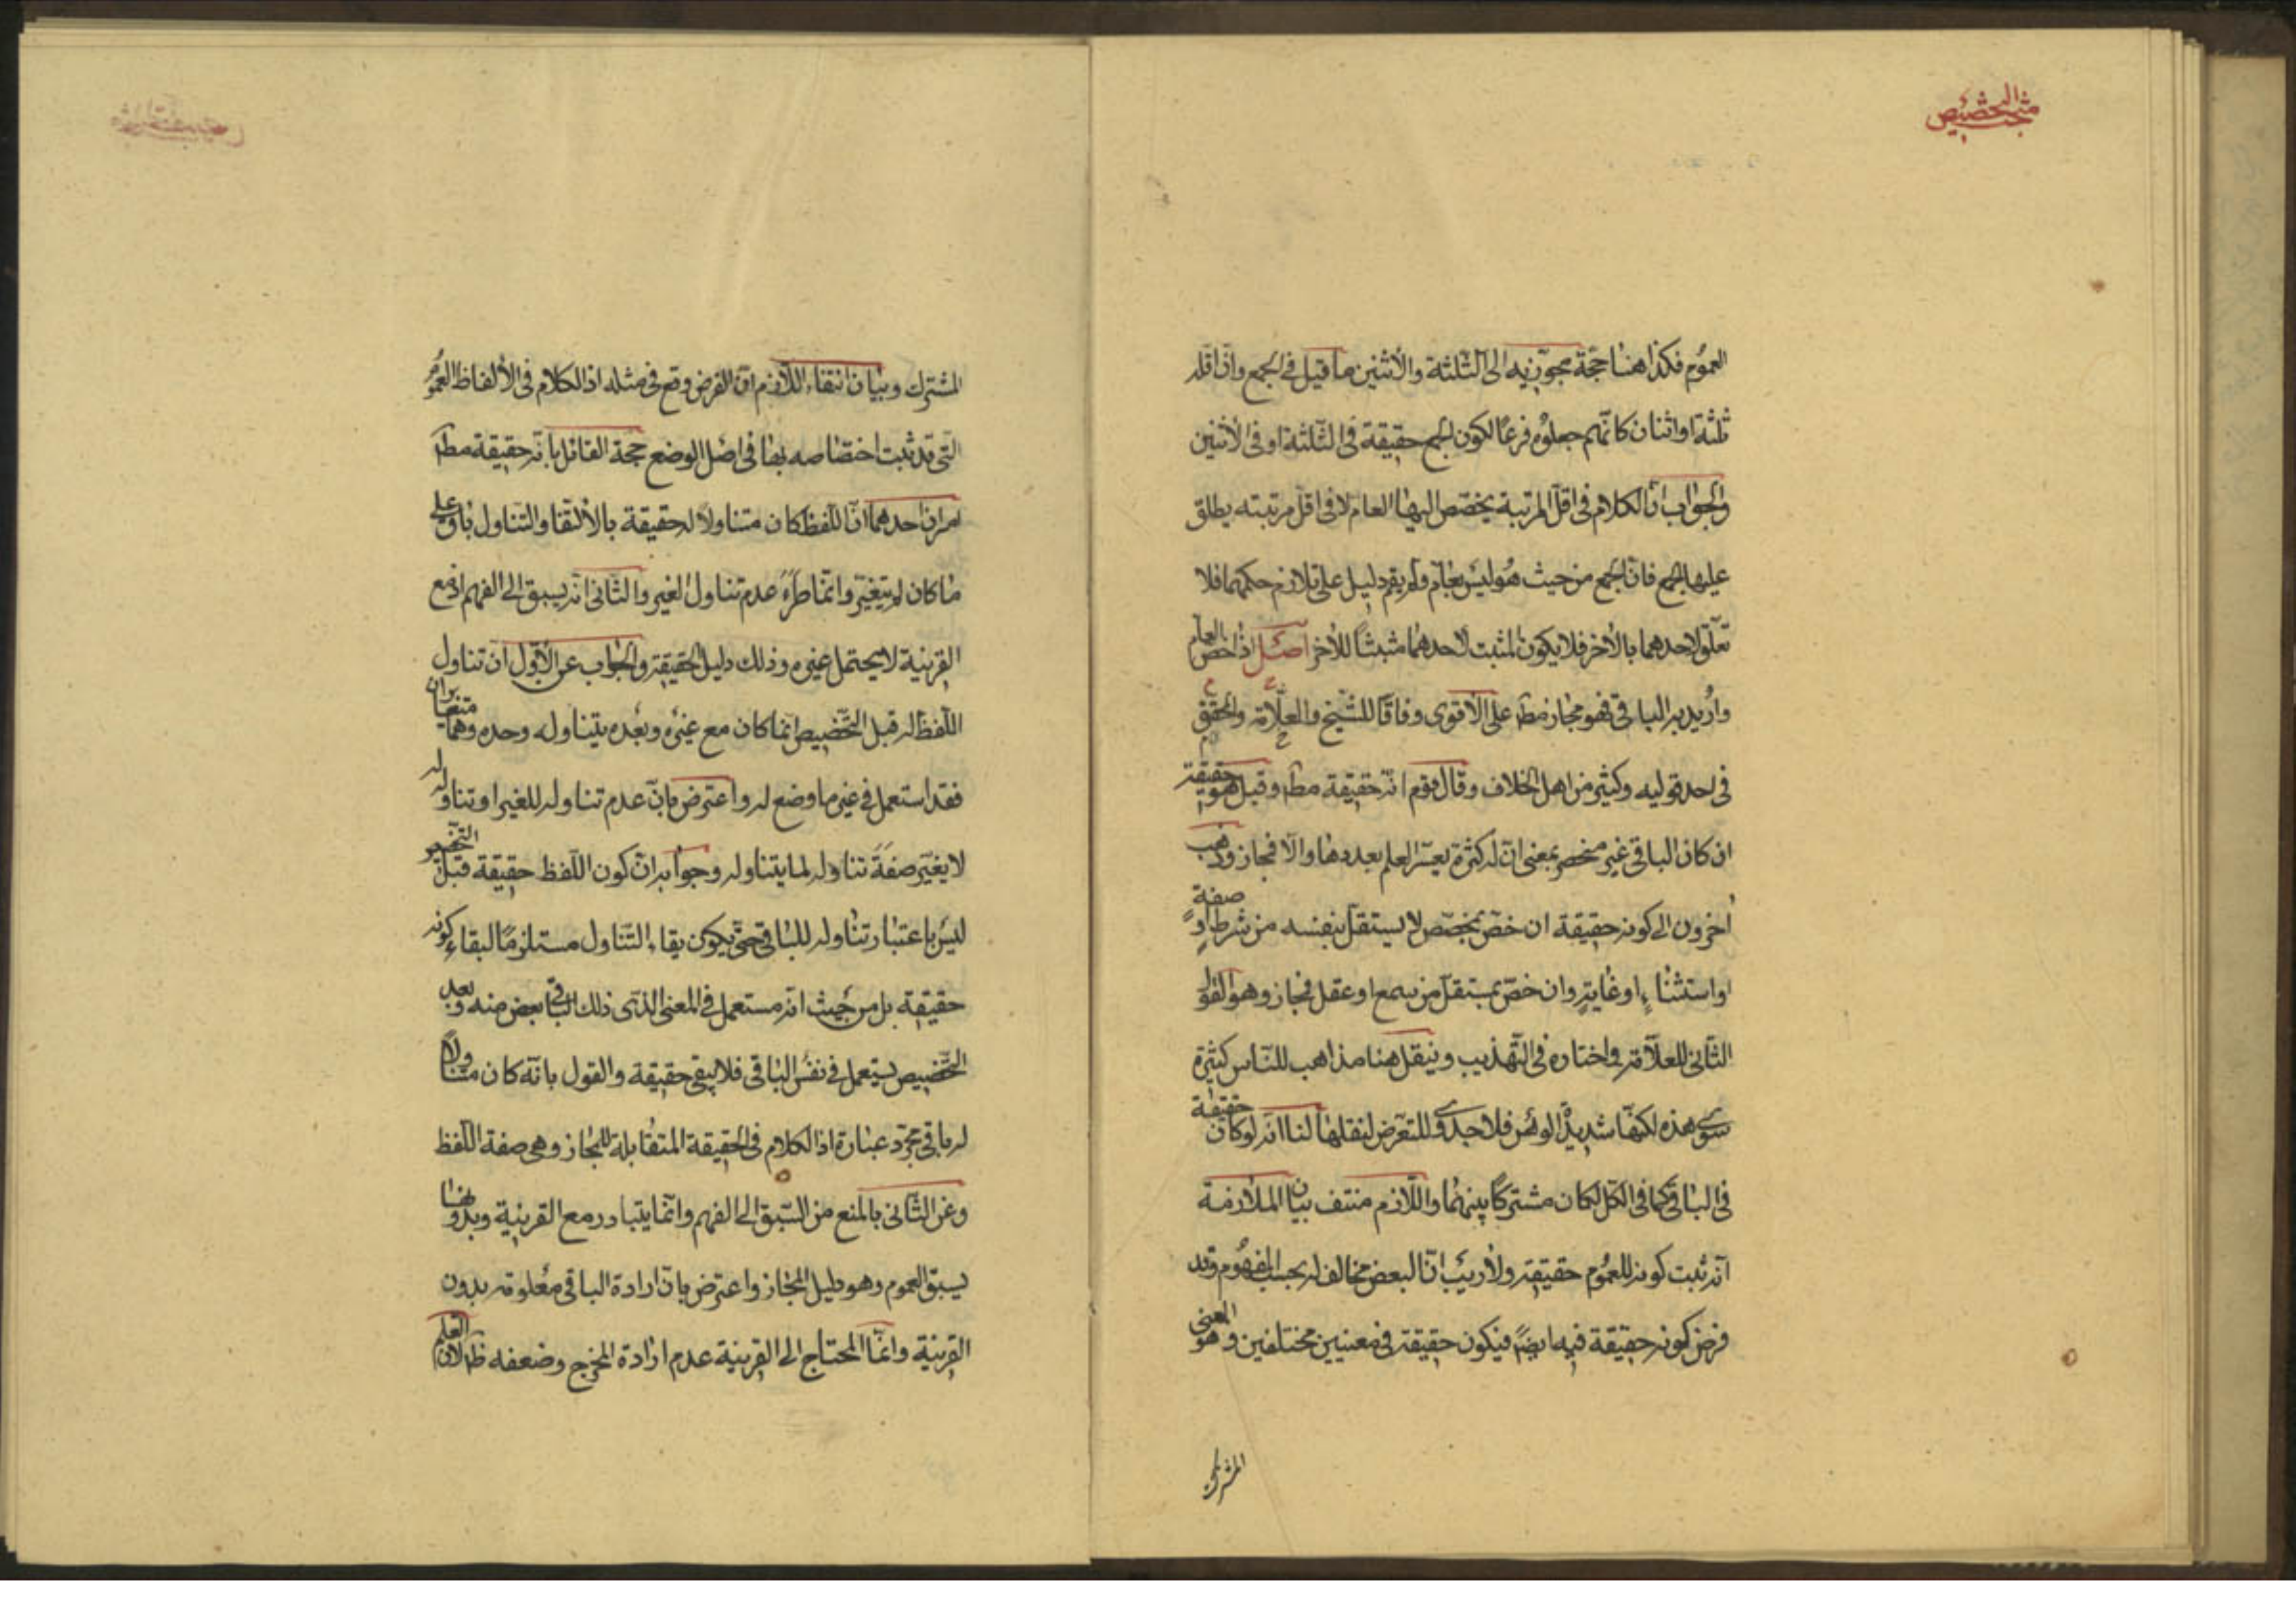 مبحث التخصيص
العموم فكذا هنا حجة مجوزيه الى الثلثة والاثنين ما قيل فى الجمع وان اقله
ثلثة او اثنان كانهم جعلوه فرعا لكون الجمع حقيقة فى الثلثة او فى الاثنين
والجواب ان الكلام فى اقل المرتبة يخصص اليها العام لا فى اقل مرتبته يطلق
عليها الجمع فان الجمع من حيث هو ليس بعام ولم يقم دليل على تلازم حكمهما فلا
تعلق لاحدهما بالاخر فلا يكون المثبت لاحدهما مثبتا للاخر اصل اذا خص العام
واريد به الباقى فهو مجاز مط على الاقوى وفاقا للشيخ والعلامة والمحقق
فى احد قوليه وكثير من اهل الخلاف وقال قوم انه حقيقة مط وقيل هو حقيقة
ان كان الباقى غير منحصر بمعنى ان له كثرة يعسر العلم بعددها والا فمجاز وذهب
اخرون الى كونه حقيقة ان خص بمخصص لا يستقل بنفسه من شرط او صفة
او استثناء او غاية وان خص بمستقل من سمع او عقل فمجاز وهو القول
الثانى للعلامة واختاره فى التهذيب وينقل هنا مذاهب للناس كثيرة
سوى هذه لكنها شديدة الوهن فلا جدوى للتعرض لنقلها لنا انه لو كان حقيقة
فى الباقى كما فى الكل لكان مشتركا بينهما واللازم منتف بيان الملازمة
انه ثبت كونه للعموم حقيقة ولا ريب ان البعض مخالف له بحسب المفهوم وقد
فرض كونه حقيقة فيه ايضا فيكون حقيقة فى معنيين مختلفين وهو المعنى
المشترك
المشترك وبيان انتفاء اللازم ان الفرض وقع فى مثله اذ الكلام فى الالفاظ العموم
التى قد ثبت اختصاصه بها فى اصل الوضع حجة القائل بانه حقيقة مط
امران احدهما ان اللفظ كان متناولا له حقيقة بالاتفاق والتناول باق على
ما كان لم يتغير وانما طرء عدم تناول الغير والثانى انه يسبق الى الفهم اذ مع
القرينة لا يحتمل غيره وذلك دليل الحقيقة والجواب عن الاول ان تناول
اللفظ له قبل التخصيص انما كان مع غيره وبعده يتناوله وحده وهما متغايران
فقد استعمل فى غير ما وضع له واعترض بان عدم تناوله للغير او تناوله له
لا يغير صفة تناوله لما يتناوله وجوابه ان كون اللفظ حقيقة قبل التخصيص
ليس باعتبار تناوله للباقى حتى يكون بقاء التناول مستلزما لبقاء كونه
حقيقة بل من حيث انه مستعمل فى المعنى الذى ذلك الباقى بعض منه وبعد
التخصيص يستعمل فى نفس الباقى فلا يبقى حقيقة والقول بانه كان متناولا
له باقى مجرد عبارة اذ الكلام فى الحقيقة المتقابلة للمجاز وهى صفة اللفظ
وعن الثانى بالمنع من السبق الى الفهم وانما يتبادر مع القرينة وبدونها
يسبق العموم وهو دليل المجاز واعترض بان ارادة الباقى معلومة بدون
القرينة وانما المحتاج الى القرينة عدم ارادة المخرج وضعفه ظ لان العلم